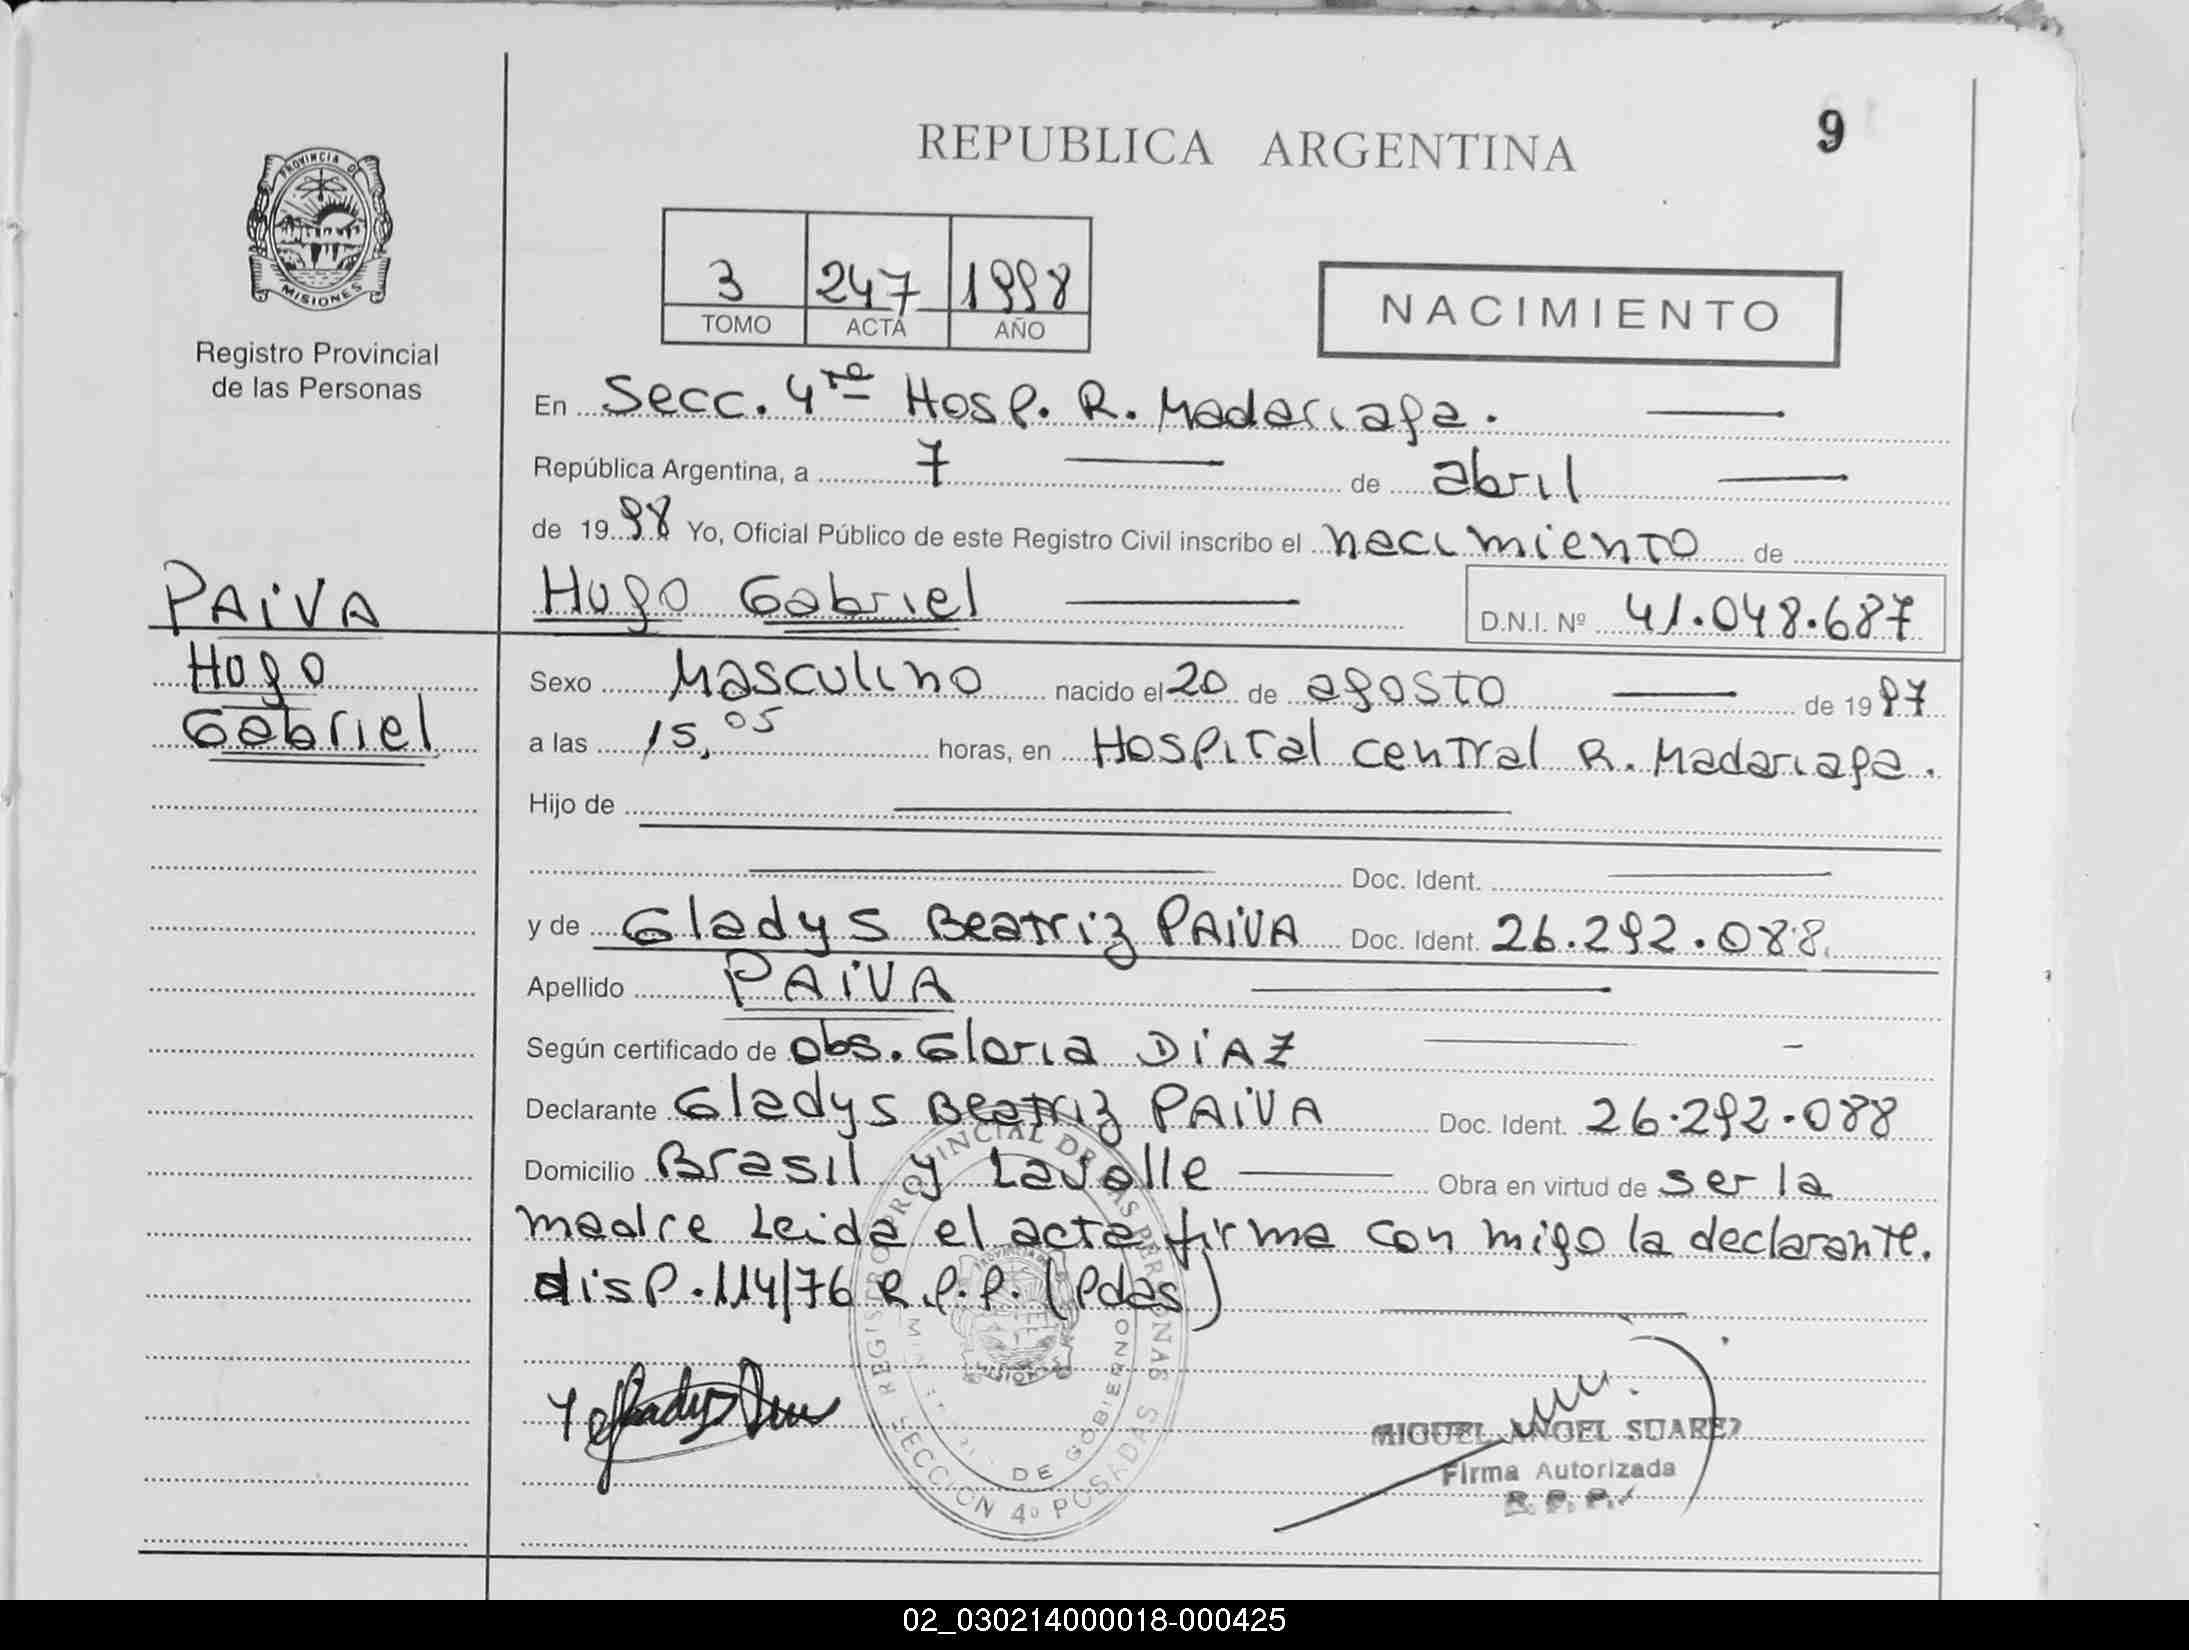 REPUBLICA ARGENTINA
9
PROVINCIA DE
MISIONES
Registro Provincial
de las Personas
3 247 1998
TOMO ACTA AÑO
NACIMIENTO
En Secc. 4ta Hosp. R. Madariaga.
República Argentina, a 7 de abril
de 1998 Yo, Oficial Público de este Registro Civil inscribo el nacimiento de
PAIVA
Hugo
Gabriel
Hugo Gabriel D.N.I. Nº 41.048.687
Sexo Masculino nacido el 20 de agosto de 1997
a las 15,05 horas, en Hospital central R. Madariaga.
Hijo de
Doc. Ident.
y de Gladys Beatriz PAIVA Doc. Ident. 26.292.088
Apellido PAIVA
Según certificado de obs. Gloria DIAZ
Declarante Gladys Beatriz PAIVA Doc. Ident. 26.292.088
Domicilio Brasil y Lavalle Obra en virtud de ser la
madre Leida el acta firma con migo la declarante.
disp. 114/76 R.P.P. (Pdas)
REGISTRO PROVINCIAL DE LAS PERSONAS
DE GOBIERNO
SECCION 4º POSADAS
MIGUEL ANGEL SUAREZ
Firma Autorizada
R. P. P.
02_030214000018-000425